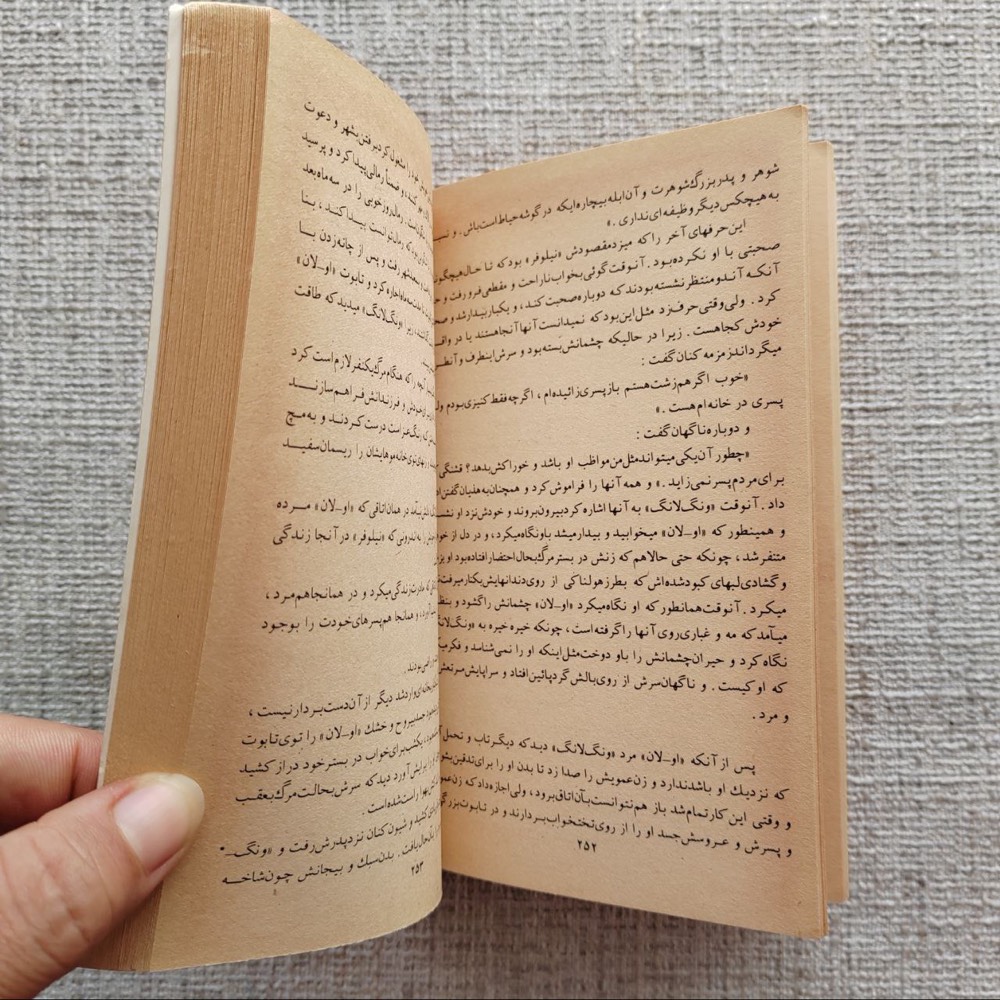 شوهر و پدربزرگ شوهرت و آن ابله بیچاره ایکه در گوشه حیاط است باش . و نسبت
به هیچکس دیگر وظیفه ای نداری . »
این حرفهای آخر را که میزد مقصودش «نیلوفر» بود که تا حال هیچگونه
صحبتی با او نکرده بود . آنوقت گوئی بخواب ناراحت و مقطعی فرو رفت و
آنکه آندو منتظر نشسته بودند که دوباره صحبت کند ، و یکبار بیدار شد و
کرد . ولی وقتی حرف زد مثل این بود که نمیدانست آنها آنجا هستند یا در
خودش کجاهست . زیرا در حالیکه چشمانش بسته بود و سرش اینطرف و آنطرف
میگرداند زمزمه کنان گفت :
«خوب اگر هم زشت هستم باز پسری زائیده ام ، اگرچه فقط کنیزی بودم
پسری در خانه ام هست . »
و دوباره ناگهان گفت :
«چطور آن یکی میتواند مثل من مواظب او باشد و خوراکش بدهد؟ قشنگی
برای مردم پسر نمی زاید . » و همه آنها را فراموش کرد و همچنان به هذیان گفتن
داد . آنوقت «ونگ لانگ» به آنها اشاره کرد بیرون بروند و خودش نزد او
و همینطور که «او-لان» میخوابید و بیدار میشد باو نگاه میکرد ، و در دل از
متنفر شد ، چونکه حتی حالا هم که زنش در بستر مرگ بحال احتضار افتاده بود او
و گشادی لبهای کبود شده اش که بطرز هولناکی از روی دندانهایش بکنار میرفت
میکرد . آنوقت همانطور که او نگاه میکرد «او-لان» چشمانش را گشود و بنظر
میآمد که مه و غباری روی آنها را گرفته است ، چونکه خیره خیره به «ونگ لانگ»
نگاه کرد و حیران چشمانش را باو دوخت مثل اینکه او را نمی شناسد و فکر
که او کیست . و ناگهان سرش از روی بالش گرد پائین افتاد و سراپایش مرتعش
و مرد .
پس از آنکه «او-لان» مرد «ونگ لانگ» دید که دیگر تاب و تحمل
که نزدیك او باشد ندارد و زن عمویش را صدا زد تا بدن او را برای تدفین
و وقتی این کار تمام شد باز هم نتوانست بآن اتاق برود ، ولی اجازه داد که
و پسرش و عروسش جسد او را از روی تختخواب بردارند و در تابوت بزرگ
۲۵۲
خود را مشغول کرد برفتن بشهر و دعوت
کند ، و ضمناً رمالی پیدا کرد و پرسید
رمال روز خوبی را در سه ماه بعد
بود که رمال توانست پیدا کند ، بنا
شهر رفت و پس از چانه زدن با
سه ماه اجاره کرد و تابوت «او-لان»
زیرا «ونگ لانگ» میدید که طاقت
آنچه را که هنگام مرگ یکنفر لازم است کرد
خودش و فرزندانش فراهم سازند
که رنگ عزا است درست کردند و به مچ
توی خانه موهایشان را ریسمان سفید
در همان اتاقی که «او-لان» مرده
اندرونی که «نیلوفر» در آنجا زندگی
زندگی میکرد و در همانجا هم مرد ،
و همانجا هم پسرهای خودت را بوجود
راضی بودند .
وارد شد دیگر از آن دست بردار نیست ،
جسد بیروح و خشك «او-لان» را توی تابوت
یکشب برای خواب در بستر خود دراز کشید
برایش آورد دید که سرش بحالت مرگ بعقب
بهوا راست شده است .
کشید و شیون کنان نزد پدرش رفت و «ونگ-
حال یافت . بدن سبك و بیجانش چون شاخه
۲۵۳